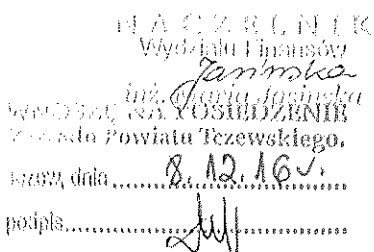 NACZELNIK
Wydziału Finansów
Jasińska
inż. Maria Jasińska
WNOSZĘ NA POSIEDZENIE
Zarządu Powiatu Tczewskiego.
Tczew, dnia........8.12.16 r.
podpis........